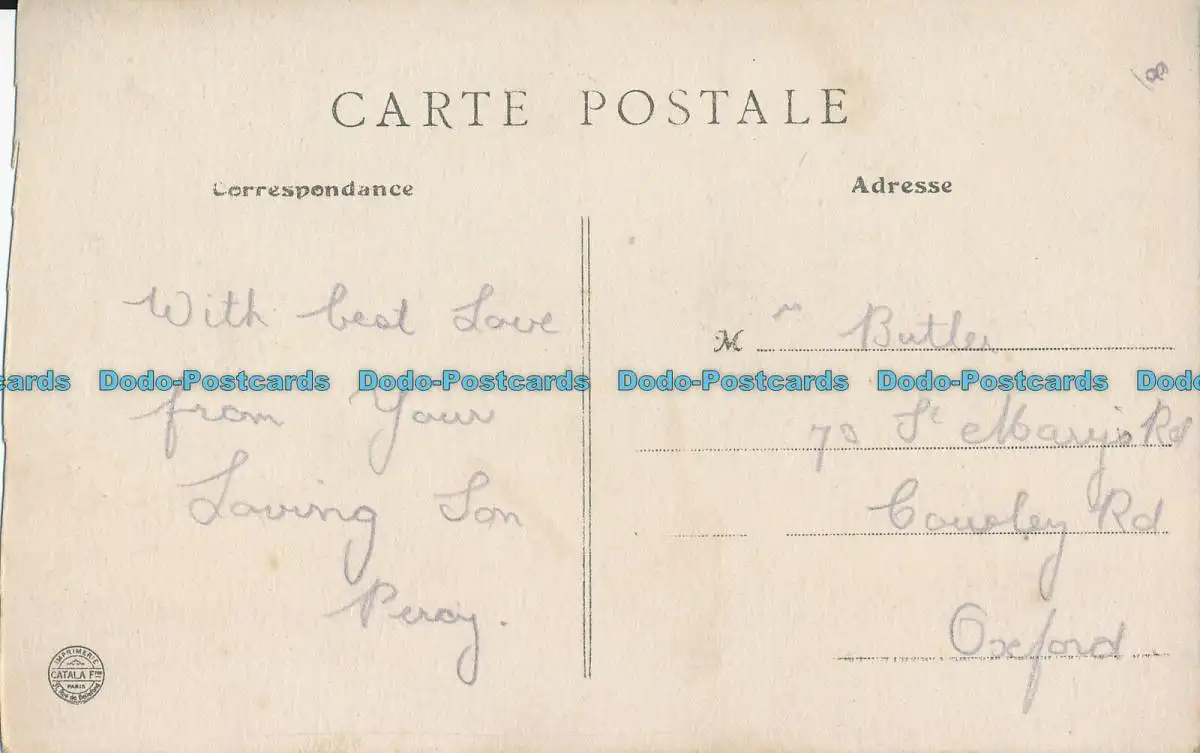 CARTE POSTALE
Correspondance
Adresse
With best Love
from Your
Loving Son
Percy.
M r Butler
73 St Mary's Rd
Cowley Rd
Oxford
Dodo-Postcards Dodo-Postcards Dodo-Postcards Dodo-Postcards
IMPRIMERIE
CATALA Fres
PARIS